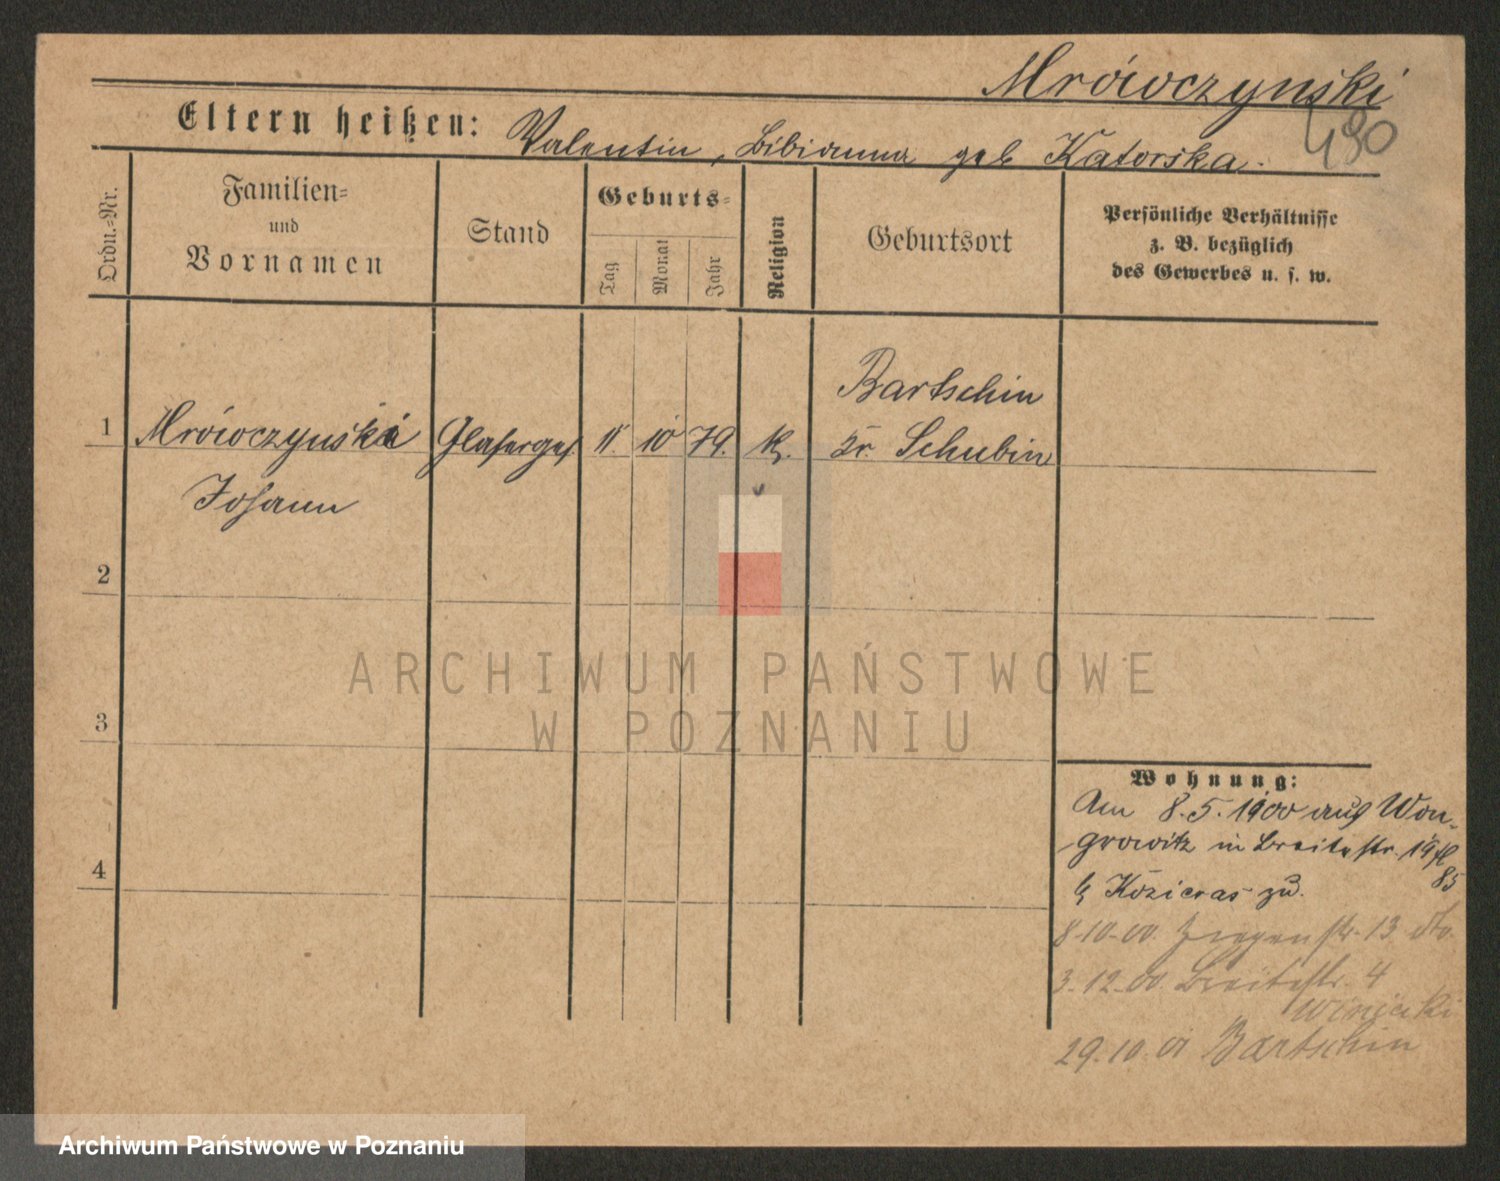 Mrówczynski
490
Eltern heißen: Valentin, Bibianna geb Katorska.
Ordn.=Nr.
Familien=
und
Vornamen
Stand
Geburts=
Tag
Monat
Jahr
Religion
Geburtsort
Persönliche Verhältnisse
z. B. bezüglich
des Gewerbes u. s. w.
Bartschin
1 Mrówczynski Glaserges 11. 10 79. k. Kr. Schubin
Johann
2
3
4
Wohnung:
Am 8.5.1900 aus Won-
growitz in Breitestr. 19
85
b Kozieras zu.
8-10-00. Ziegenstr. 13 dto.
3.12.00. Breitestr. 4
Winiecki
29.10.01 Bartschin
ARCHIWUM PAŃSTWOWE
W POZNANIU
Archiwum Państwowe w Poznaniu